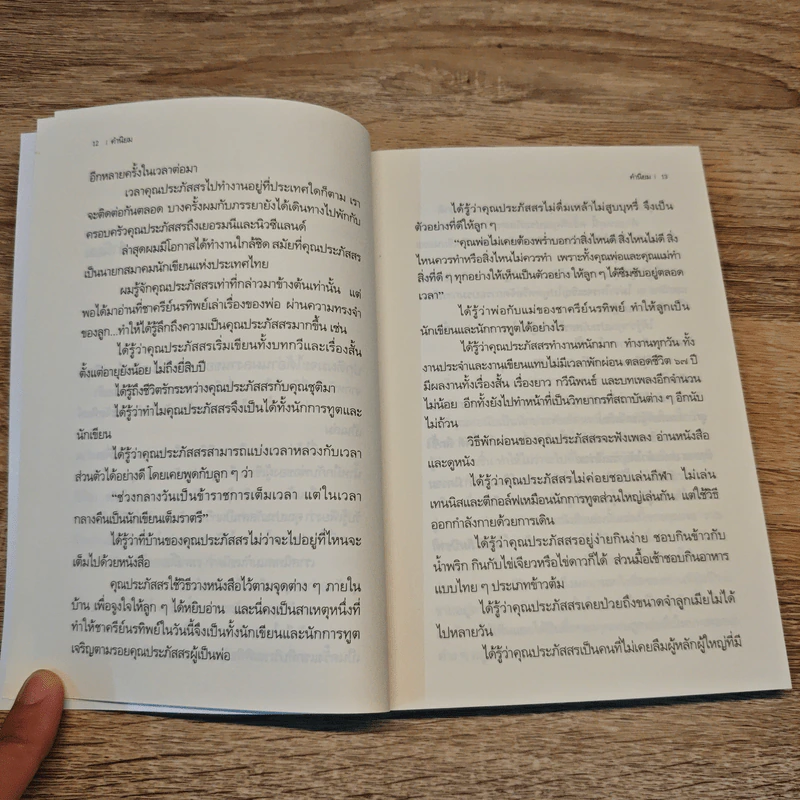 12 | คำนิยม
อีกหลายครั้งในเวลาต่อมา
เวลาคุณประภัสสรไปทำงานอยู่ที่ประเทศใดก็ตาม เรา
จะติดต่อกันตลอด บางครั้งผมกับภรรยายังได้เดินทางไปพักกับ
ครอบครัวคุณประภัสสรถึงเยอรมนีและนิวซีแลนด์
ล่าสุดผมมีโอกาสได้ทำงานใกล้ชิด สมัยที่คุณประภัสสร
เป็นนายกสมาคมนักเขียนแห่งประเทศไทย
ผมรู้จักคุณประภัสสรเท่าที่กล่าวมาข้างต้นเท่านั้น แต่
พอได้มาอ่านที่ชาครีย์นรทิพย์เล่าเรื่องของพ่อ ผ่านความทรงจำ
ของลูก...ทำให้ได้รู้ลึกถึงความเป็นคุณประภัสสรมากขึ้น เช่น
ได้รู้ว่าคุณประภัสสรเริ่มเขียนทั้งบทกวีและเรื่องสั้น
ตั้งแต่อายุยังน้อย ไม่ถึงยี่สิบปี
ได้รู้ถึงชีวิตรักระหว่างคุณประภัสสรกับคุณชุติมา
ได้รู้ว่าทำไมคุณประภัสสรจึงเป็นได้ทั้งนักการทูตและ
นักเขียน
ได้รู้ว่าคุณประภัสสรสามารถแบ่งเวลาหลวงกับเวลา
ส่วนตัวได้อย่างดี โดยเคยพูดกับลูก ๆ ว่า
“ช่วงกลางวันเป็นข้าราชการเต็มเวลา แต่ในเวลา
กลางคืนเป็นนักเขียนเต็มราตรี”
ได้รู้ว่าที่บ้านของคุณประภัสสรไม่ว่าจะไปอยู่ที่ไหนจะ
เต็มไปด้วยหนังสือ
คุณประภัสสรใช้วิธีวางหนังสือไว้ตามจุดต่าง ๆ ภายใน
บ้าน เพื่อจูงใจให้ลูก ๆ ได้หยิบอ่าน และนี่คงเป็นสาเหตุหนึ่งที่
ทำให้ชาครีย์นรทิพย์ในวันนี้จึงเป็นทั้งนักเขียนและนักการทูต
เจริญตามรอยคุณประภัสสรผู้เป็นพ่อ
คำนิยม | 13
ได้รู้ว่าคุณประภัสสรไม่ดื่มเหล้าไม่สูบบุหรี่ จึงเป็น
ตัวอย่างที่ดีให้ลูก ๆ
“คุณพ่อไม่เคยต้องพร่ำบอกว่าสิ่งไหนดี สิ่งไหนไม่ดี สิ่ง
ไหนควรทำหรือสิ่งไหนไม่ควรทำ เพราะทั้งคุณพ่อและคุณแม่ทำ
สิ่งที่ดี ๆ ทุกอย่างให้เห็นเป็นตัวอย่าง ให้ลูก ๆ ได้ซึมซับอยู่ตลอด
เวลา”
ได้รู้ว่าพ่อกับแม่ของชาครีย์นรทิพย์ ทำให้ลูกเป็น
นักเขียนและนักการทูตได้อย่างไร
ได้รู้ว่าคุณประภัสสรทำงานหนักมาก ทำงานทุกวัน ทั้ง
งานประจำและงานเขียนแทบไม่มีเวลาพักผ่อน ตลอดชีวิต ๖๗ ปี
มีผลงานทั้งเรื่องสั้น เรื่องยาว กวีนิพนธ์ และบทเพลงอีกจำนวน
ไม่น้อย อีกทั้งยังไปทำหน้าที่เป็นวิทยากรที่สถาบันต่าง ๆ อีกนับ
ไม่ถ้วน
วิธีพักผ่อนของคุณประภัสสรจะฟังเพลง อ่านหนังสือ
และดูหนัง
ได้รู้ว่าคุณประภัสสรไม่ค่อยชอบเล่นกีฬา ไม่เล่น
เทนนิสและตีกอล์ฟเหมือนนักการทูตส่วนใหญ่เล่นกัน แต่ใช้วิธี
ออกกำลังกายด้วยการเดิน
ได้รู้ว่าคุณประภัสสรอยู่ง่ายกินง่าย ชอบกินข้าวกับ
น้ำพริก กินกับไข่เจียวหรือไข่ดาวก็ได้ ส่วนมื้อเช้าชอบกินอาหาร
แบบไทย ๆ ประเภทข้าวต้ม
ได้รู้ว่าคุณประภัสสรเคยป่วยถึงขนาดจำลูกเมียไม่ได้
ไปหลายวัน
ได้รู้ว่าคุณประภัสสรเป็นคนที่ไม่เคยลืมผู้หลักผู้ใหญ่ที่มี